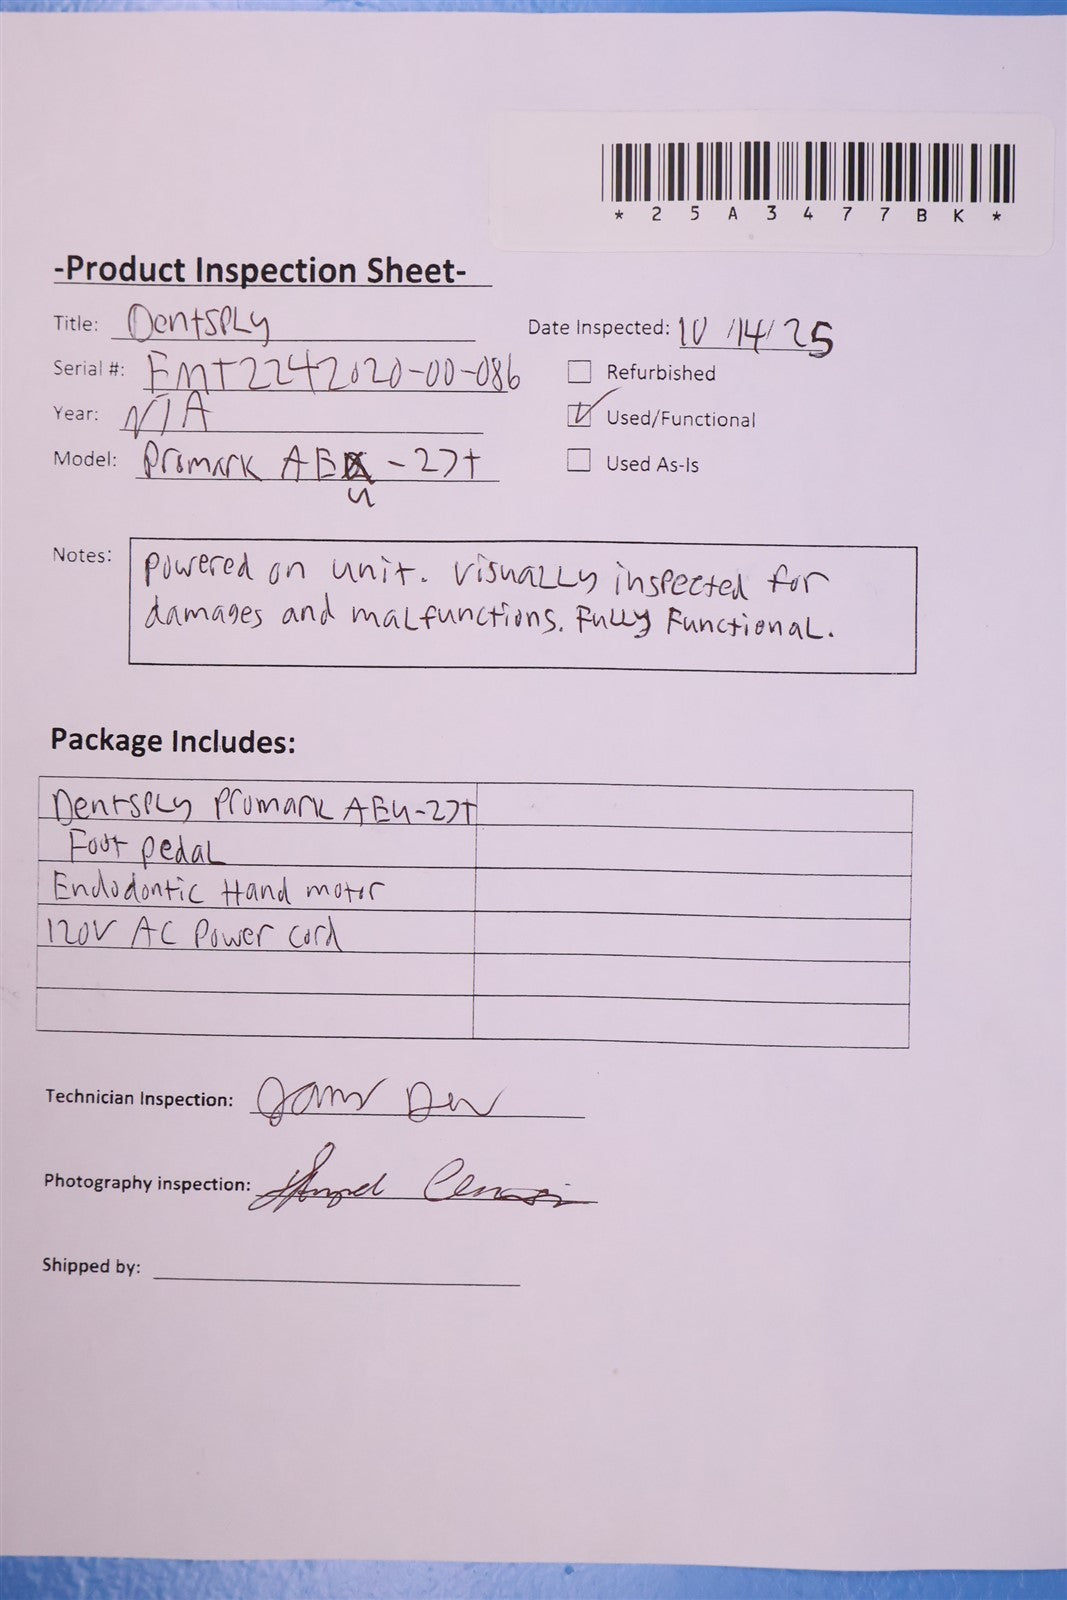 *25A3477BK*
-Product Inspection Sheet-
Title: Dentsply
Date Inspected: 10/14/25
Serial #: EMT2242020-00-086
Refurbished
Year: N/A
Used/Functional
Model: Promark AEU-27t
Used As-Is
Notes: Powered on unit. Visually inspected for
damages and malfunctions. Fully Functional.
Package Includes:
Dentsply Promark AEU-27t
Foot pedal
Endodontic Hand motor
120V AC Power cord
Technician Inspection:
Photography inspection:
Shipped by: